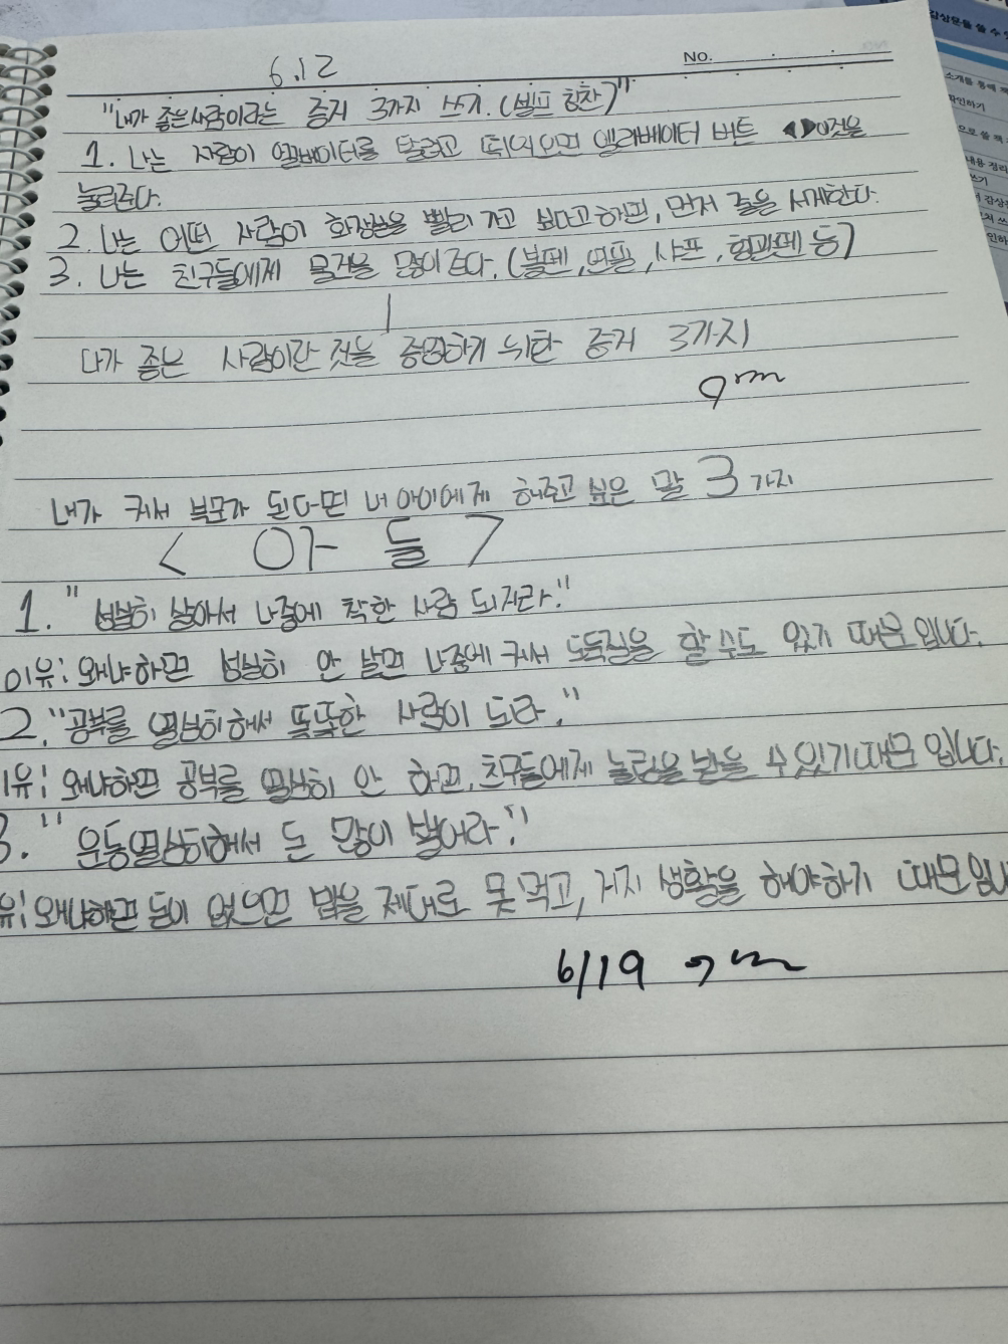 6.12
No.
"내가 좋은사람이라는 증거 3가지 쓰기. (셀프 칭찬)"
1. 나는 사람이 엘베이터를 탈려고 뛰어오면 엘리베이터 버튼 ◀▶이것을
눌러준다.
2. 나는 어떤 사람이 화장실을 빨리 가고 싶다고 하면, 먼저 줄을 서게한다.
3. 나는 친구들에게 물건을 많이 준다. (볼펜, 연필, 샤프, 형광펜 등)
다가 좋은 사람이란 것을 증명하기 위한 증거 3가지
내가 커서 부모가 된다면 내 아이에게 해주고 싶은 말 3가지
< 아들 >
1. "성실히 살아서 나중에 착한 사람 되거라."
이유: 왜냐하면 성실히 안 살면 나중에 커서 도둑질을 할 수도 있기 때문입니다.
2. "공부를 열심히해서 똑똑한 사람이 되라."
이유: 왜냐하면 공부를 열심히 안 하고, 친구들에게 놀림을 받을 수 있기때문 입니다.
3. "운동열심히해서 돈 많이 벌어라."
유: 왜냐하면 돈이 없으면 밥을 제대로 못 먹고, 거지 생활을 해야하기 때문입니
6/19